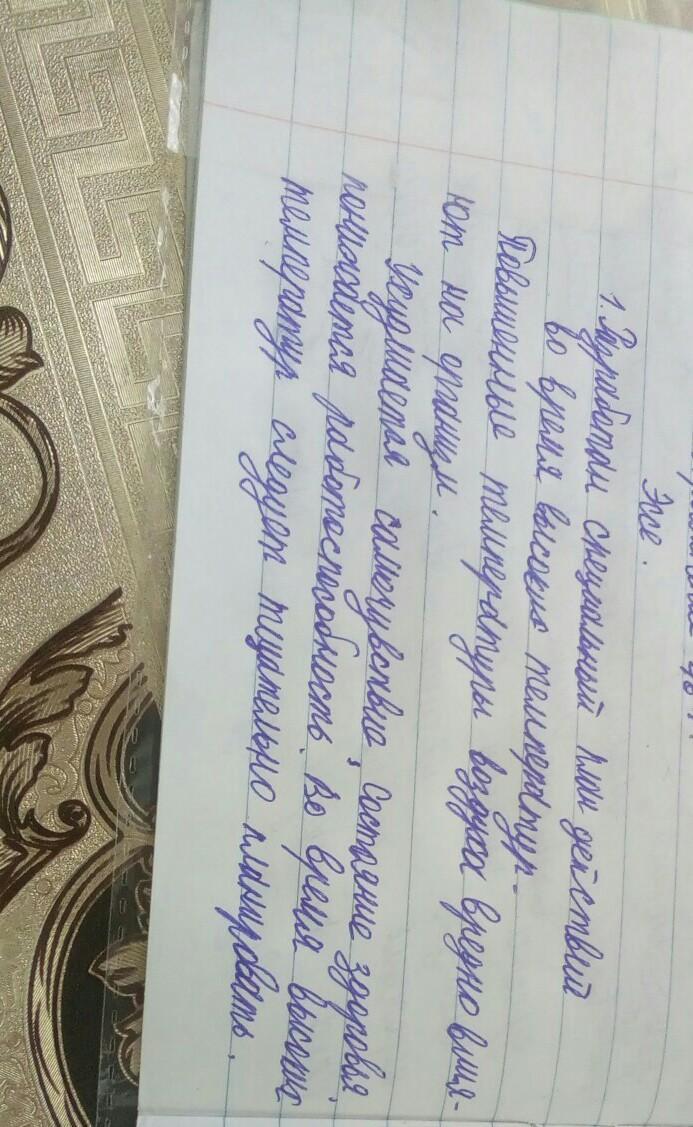 Эссе.
1. Разработан специальный план действий
во время высоких температур.
Повышенные температуры воздуха вредно влия-
ют на организм.
Ухудшается самочувствие, состояние здоровья,
понижается работоспособность. Во время высоких
температур следует тщательно планировать.